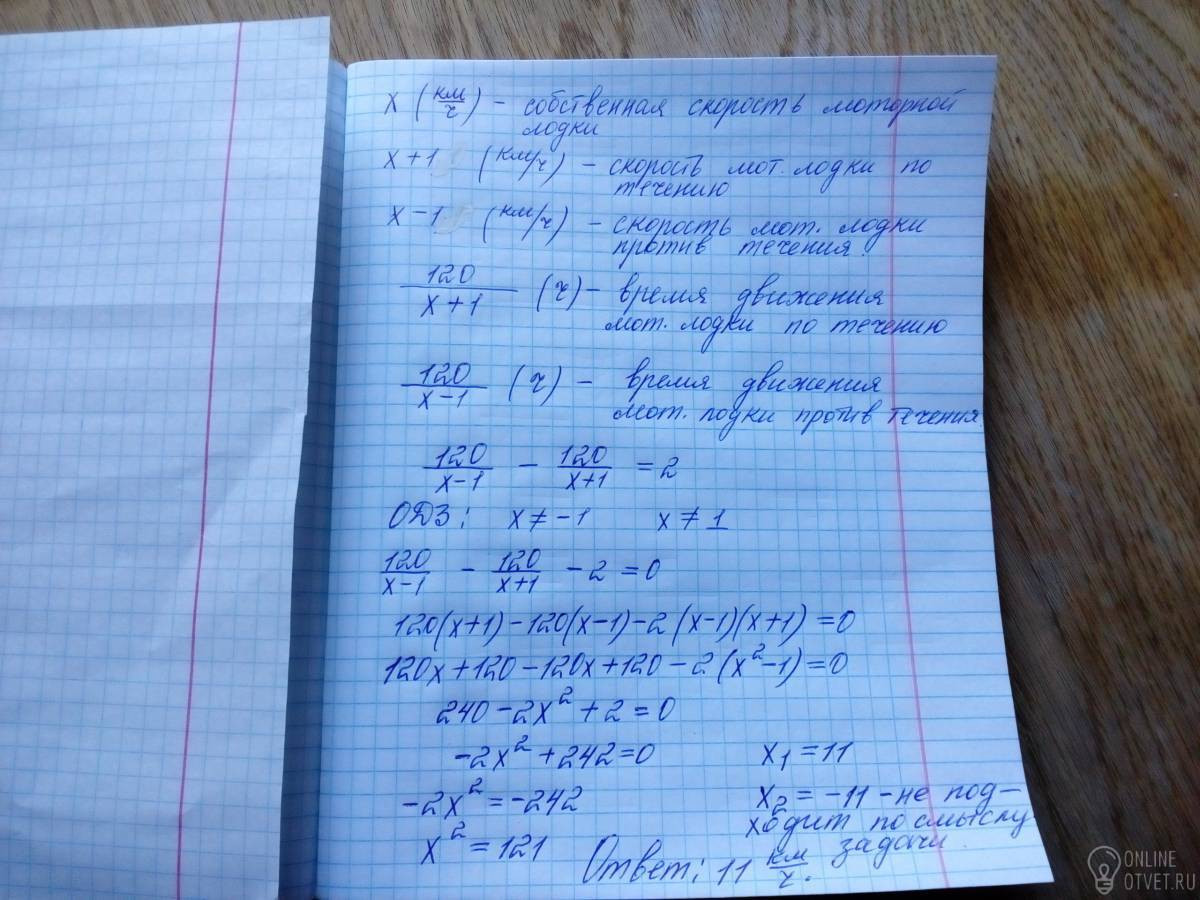 x (км/ч) – собственная скорость моторной
лодки
x+1 (км/ч) – скорость мот. лодки по
течению
x–1 (км/ч) – скорость мот. лодки
против течения.
120/(x+1) (ч) – время движения
мот. лодки по течению
120/(x–1) (ч) – время движения
мот. лодки против течения.
120/(x–1) – 120/(x+1) = 2
ОДЗ: x ≠ –1 x ≠ 1
120/(x–1) – 120/(x+1) – 2 = 0
120(x+1) – 120(x–1) – 2(x–1)(x+1) = 0
120x + 120 – 120x + 120 – 2(x² – 1) = 0
240 – 2x² + 2 = 0
–2x² + 242 = 0
–2x² = –242
x² = 121
x₁ = 11
x₂ = –11 – не под–
ходит по смыслу
задачи.
Ответ: 11 км/ч.
ONLINE
OTVET.RU